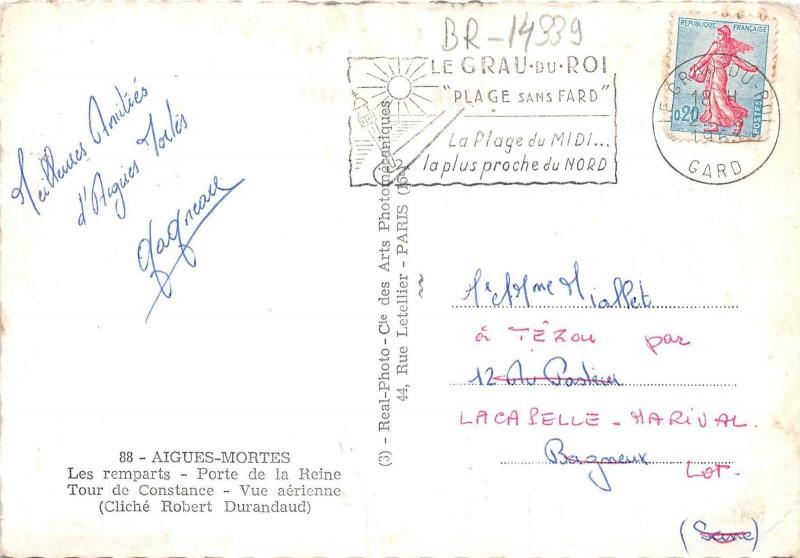 BR-14339
LE GRAU-DU-ROI
"PLAGE SANS FARD"
La Plage du MIDI...
la plus proche du NORD
REPUBLIQUE FRANÇAISE
0,20
POSTES
LE GRAU-DU-ROI
18 H
GARD
Meilleures Amitiés
d'Aigues Mortes
(3) - Real-Photo - Cie des Arts Photomécaniques
44, Rue Letellier - PARIS (15e)
Mr & Mme Miallet
à TÉZOU par
12 Av Pasteur
LACAPELLE-MARIVAL
Bagneux Lot.
(Seine)
88 - AIGUES-MORTES
Les remparts - Porte de la Reine
Tour de Constance - Vue aérienne
(Cliché Robert Durandaud)